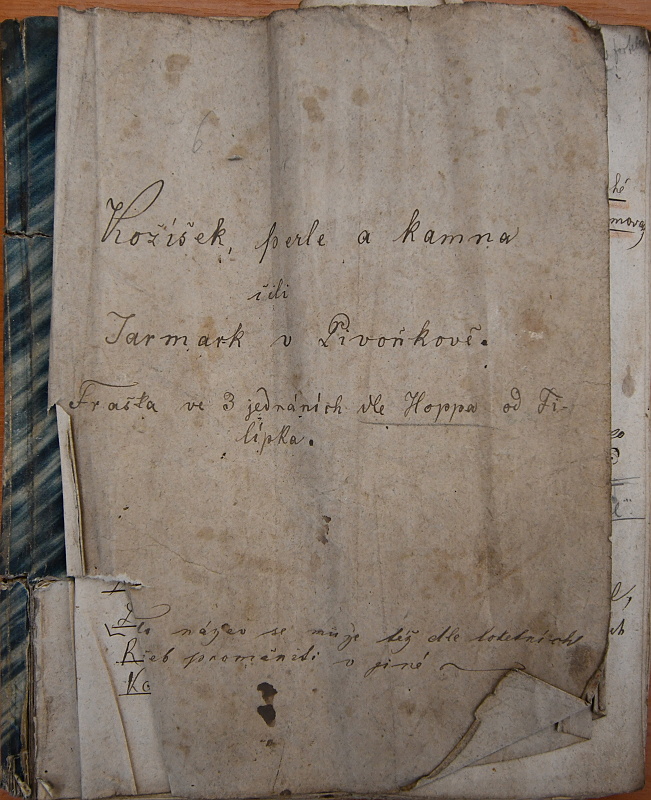 6
Kožíšek, perle a kamna
čili
Jarmark v Pivoňkově.
Fraška ve 3 jednáních dle Hoppa od Fi-
lípka.
název se může též dle
proměniti v jiné
Ko